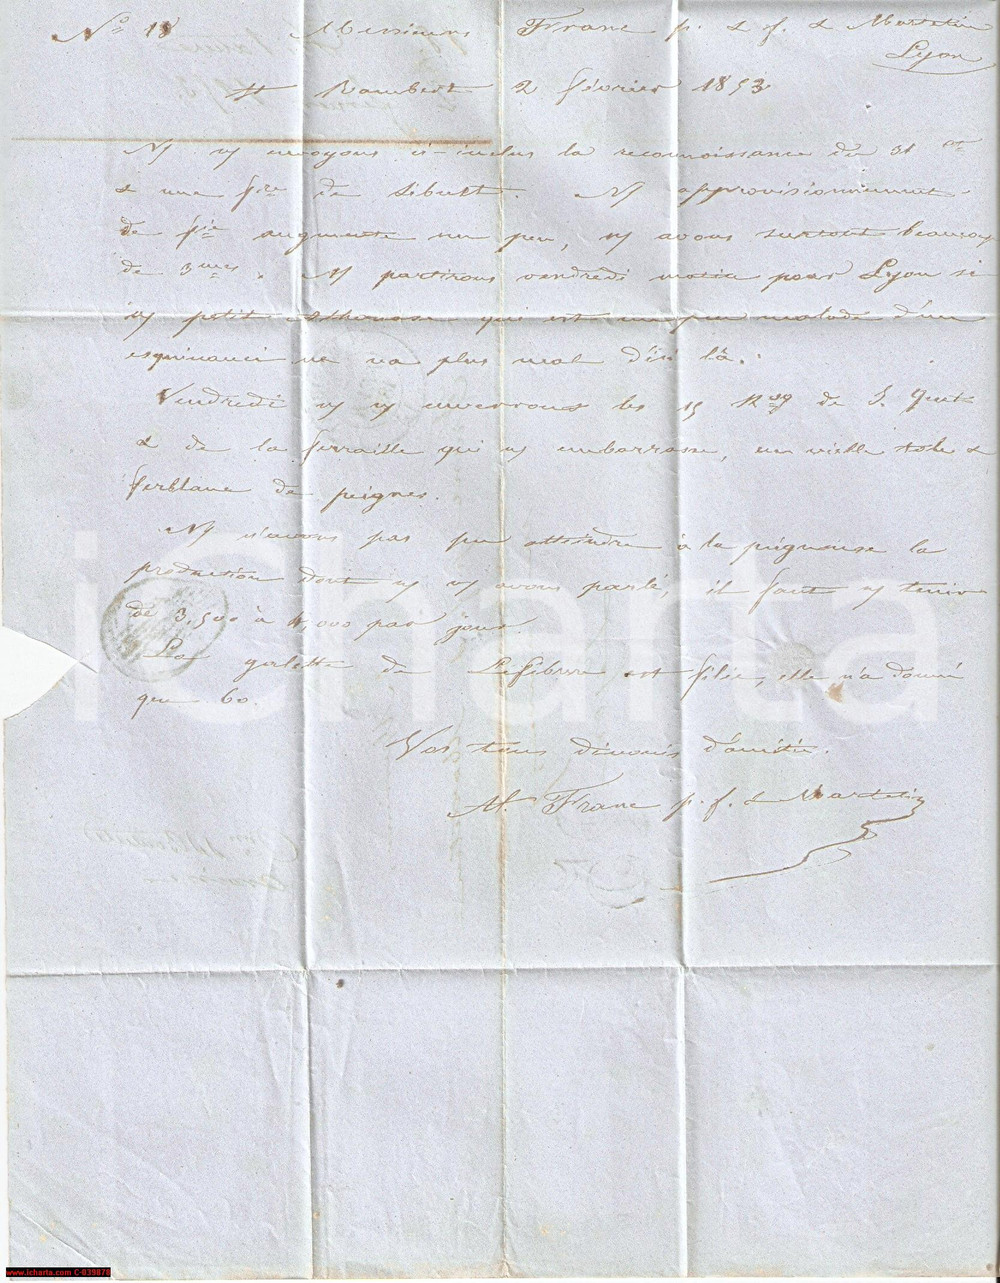 No 18 Messieurs Franc p. & f. & Martelin
Lyon
St Rambert 2 février 1853
N v envoyons ci-inclus la reconnoissance du 31 ct
& une fre de Sibuet. N approvisionnement
de pie augmente un peu, n avons surtout beaucoup
de 3mes. N partirons vendredi matin pour Lyon si
n petit qui est un peu malade d'une
esquinancie ne va plus mal d'ici là.
Vendredi n v enverrons les 15 de S. Quet
& de la ferraille qui n embarrasse, en vieille tole &
ferblanc de peignes.
N n'avons pas pu atteindre à la peigneuse la
production dont n v avons parlé, il faut n tenir
de 3,500 à 4,000 par jour.
La galette de Lefebvre est filée, elle n'a donné
que 60.
Vos tous dévoués d'amitié.
M. Franc p. f. & Martelin
iCharta
www.icharta.com C-039878